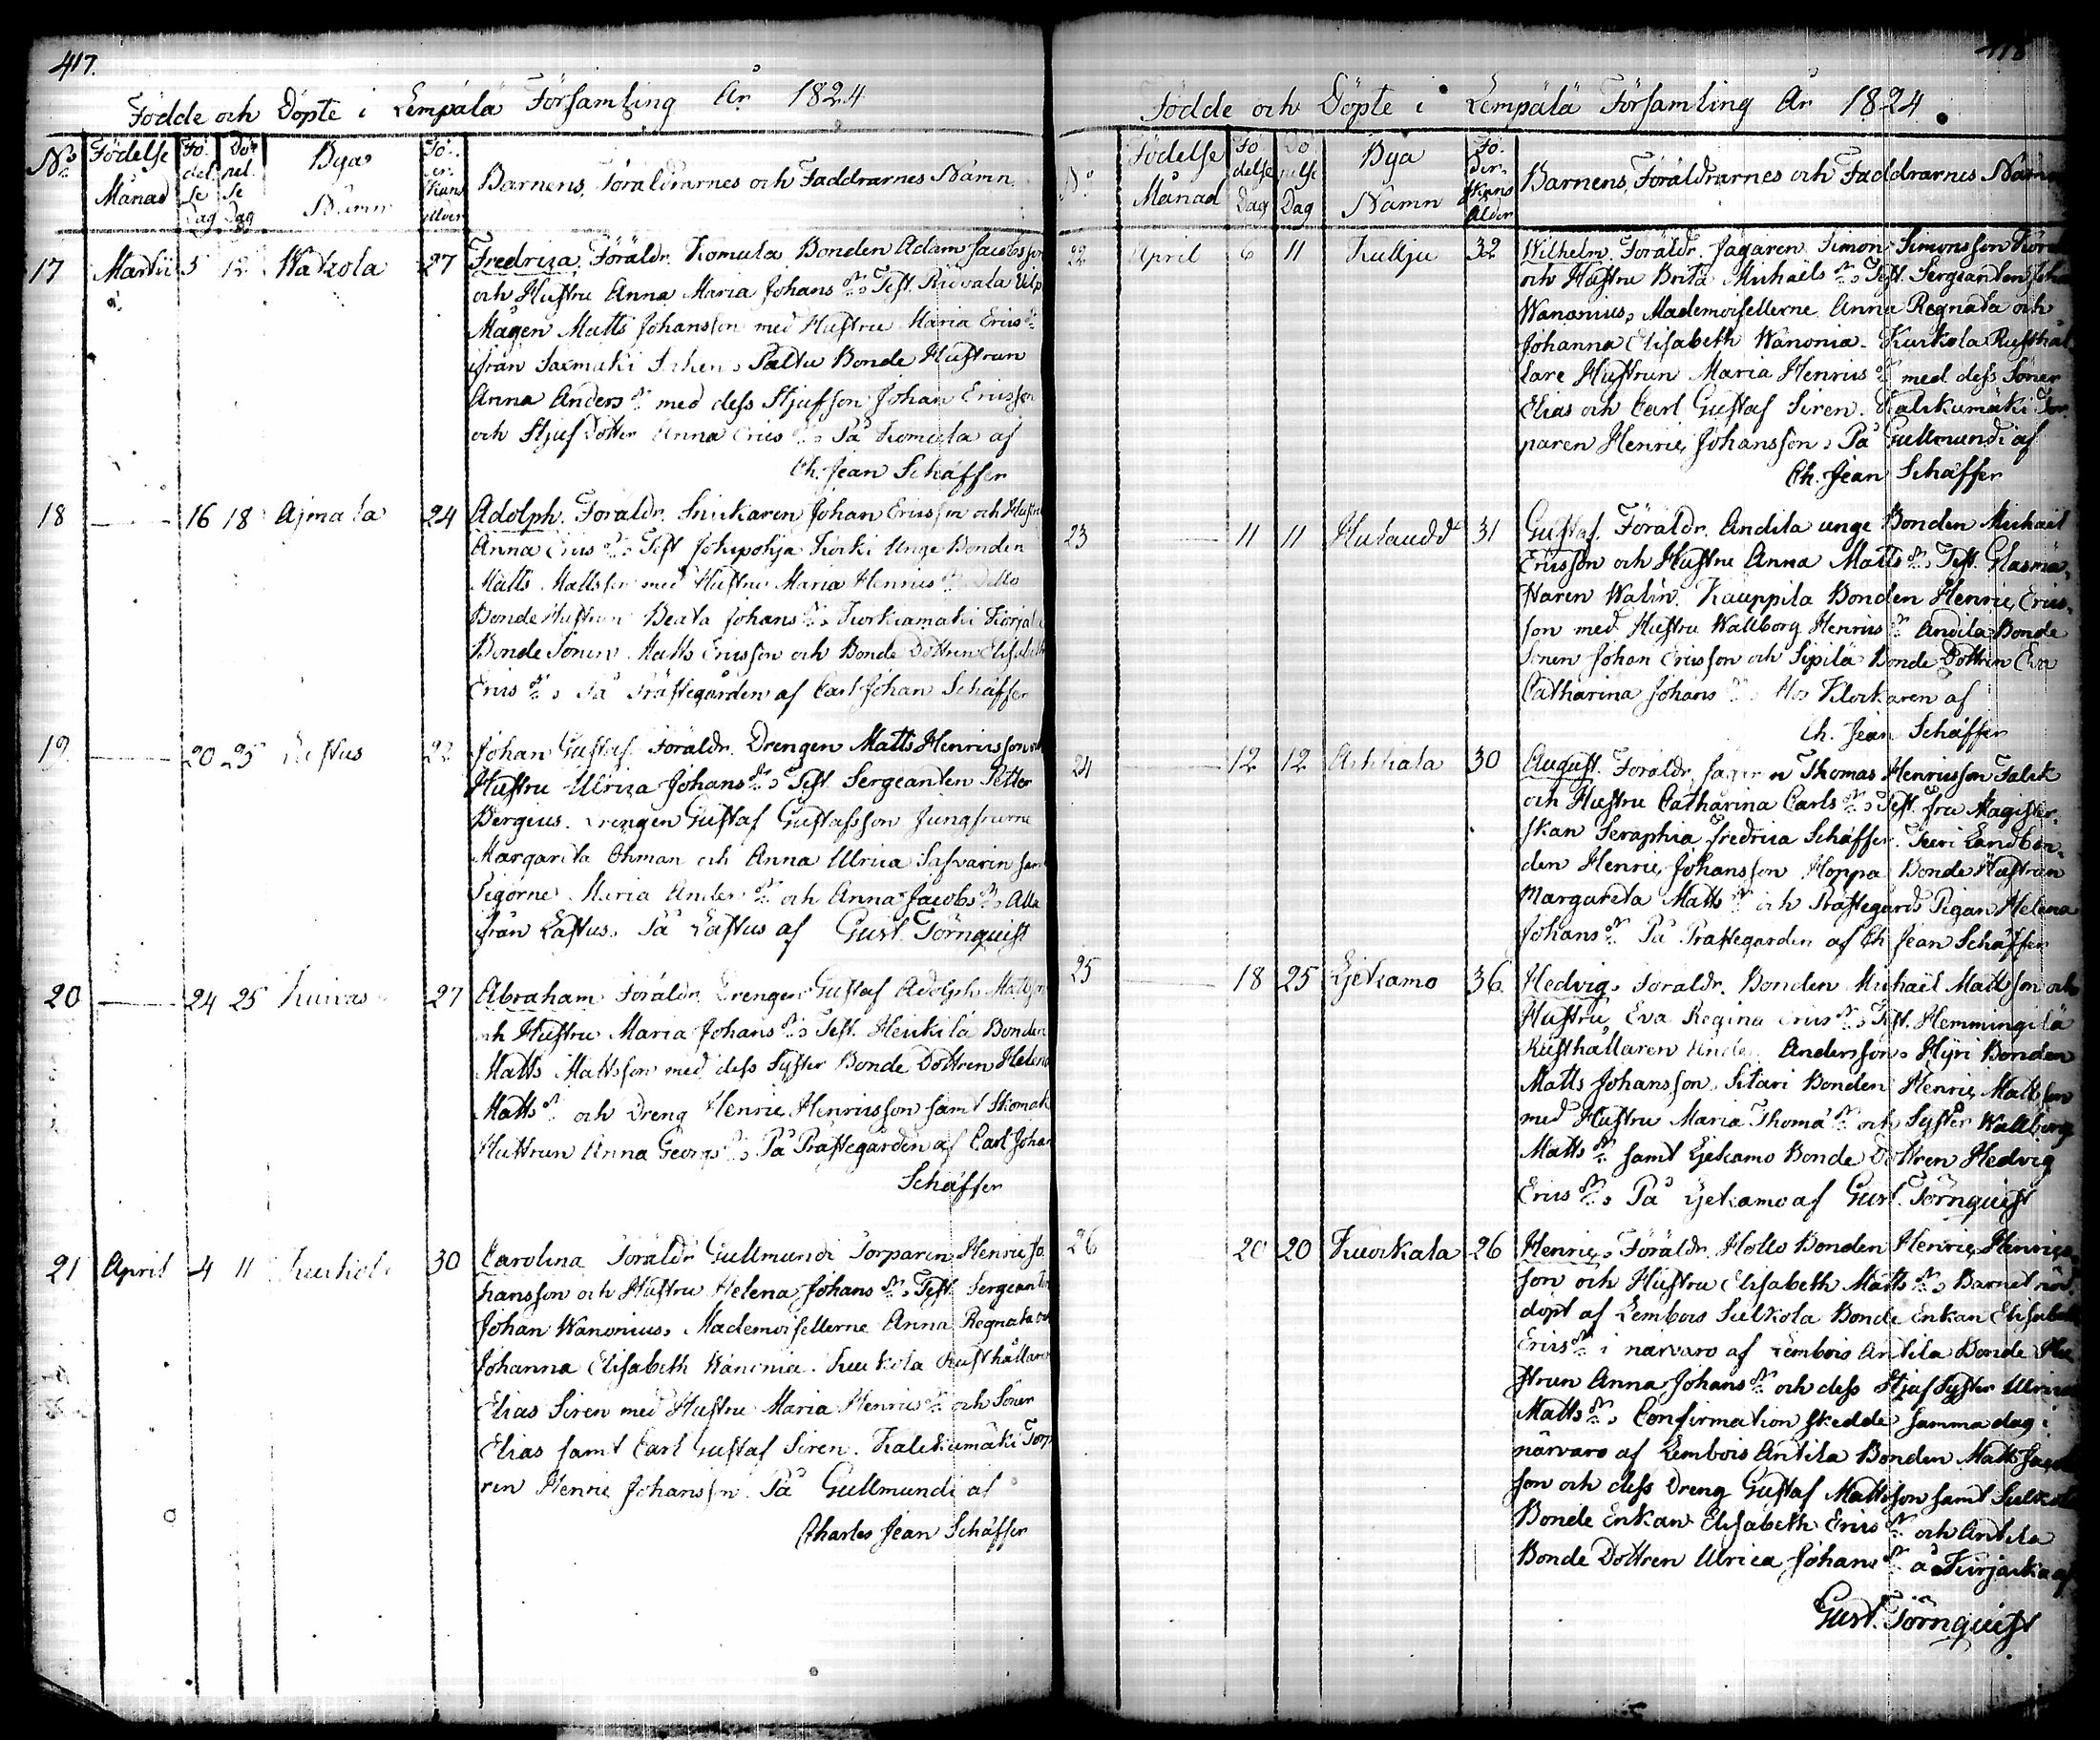 417.
Födde och Döpte i Lempälä Församling År 1824
No Födelse Månad Födelse Dag Döpelse Dag Byas Namn Föderskans Ålder Barnens, Föräldrarnes och Faddrarnes Namn.
17 Martii 5 12 Wakola 27 Fredrica. Föräldr. Komula Bonden Adam Jacobsson
och Hustru Anna Maria Johans dr. Test.
Mågen Matts Johansson med Hustru Maria Erics dr
ifrån Saxmäki Paltu Bonde Hustrun
Anna Anders dr med dess Stjufson Johan Ericsson
och Stjuf Dotter Anna Erics dr. På Komula af
Ch. Jean Schäffer
18 — 16 18 Ajmala 24 Adolph. Föräldr. Snickaren Johan Ericsson och Hustru
Anna Erics dr. Test Korki Unge Bonden
Matts Mattsson med Hustru Maria Henrics dr
Bonde Hustrun Beata Johans dr. Korkiamäki
Bonde Sonen Matts Ericsson och Bonde Dottren Elisabeth
Erics dr. På Prästegården af Carl Johan Schäffer
19. — 20 25 22 Johan Gustaf. Föräldr. Drengen Matts Henricsson och
Hustru Ulrica Johans dr. Test. Sergeanten Petter
Bergius. Drengen Gustaf Gustafsson Jungfrurne
Margareta Öhman och Anna Ulrica Safvarin samt
Pigorne Maria Anders dr och Anna Jacobs dr. Alla
från Lastus. På Lastus af Gust. Törnquist
20 — 24 25 Kuivas 27 Abraham Föräldr. Drengen Gustaf Adolph Mattsson
och Hustru Maria Johans dr. Test. Heickilä Bonden
Matts Mattsson med dess Syster Bonde Dottren Helena
Matts dr och Dreng Henric Henricsson samt Skomak.
Hustrun Anna Georgs dr. På Prästegården af Carl Johan
Schäffer
21 April 4 11 Kurkola 30 Carolina Föräldr. Gullmundi Torparen Henric Jo-
hansson och Hustru Helena Johans dr. Test. Sergeanten
Johan Wanonius, Mademoisellerne Anna Regnata och
Johanna Elisabeth Wanonia. Kurkola Rusthållaren
Elias Siren med Hustru Maria Henrics dr och Söner
Elias samt Carl Gustaf Siren. Kalckumäki Torpa-
ren Henric Johansson. På Gullmundi af
Charles Jean Schäffer
418
Födde och Döpte i Lempälä Församling År 1824.
No Födelse Månad Födelse Dag Döpelse Dag Bya Namn Föderskans Ålder Barnens, Föräldrarnes och Faddrarnes Namn
22 April 6 11 Kullju 32 Wilhelm. Föräldr. Jägaren Simon Simonsson
och Hustru Brita Michaels dr. Test. Sergeanten Johan
Wanonius, Mademoisellerne Anna Regnata och
Johanna Elisabeth Wanonia. Kurkola Rusthål-
lare Hustrun Maria Henrics dr med dess Söner
Elias och Carl Gustaf Siren. Kalckumäki Tor-
paren Henric Johansson. På Gullmundi af
Ch. Jean Schäffer
23 — 11 11 31 Gustaf. Föräldr. Andila unge Bonden Michaël
Ericsson och Hustru Anna Matts dr. Test. Glasmä-
staren Walin. Kauppila Bonden Henric Erics-
son med Hustru Wallborg Henrics dr Andila Bonde
Sonen Johan Ericsson och Sipilä Bonde Dottren Eva
Catharina Johans dr. Hos Klockaren af
Ch. Jean Schäffer
24 — 12 12 30 August. Föräldr. Jägaren Thomas Henricsson Falck
och Hustru Catharina Carls dr. Test. fru Magister-
skan Seraphia Fredrica Schäffer. Landbon-
den Henric Johansson Hoppa Bonde Hustrun
Margareta Matts dr och Prästegårds Pigan Helena
Johans dr. På Prästegården af Ch Jean Schäffer
25 — 18 25 Ljekamo 36. Hedvig. Föräldr. Bonden Michaël Mattsson och
Hustru Eva Regina Erics dr. Test. Hemmingilä
Rusthållaren Andersson. Hyri Bonden
Matts Johansson. Bonden Henric Mattsson
med Hustru Maria Thomæ dr och Syster Wallborg
Matts dr samt Ljekamo Bonde Dottren Hedvig
Erics dr. På Ljekamo af Gust. Törnquist
26 20 20 Kuokala 26 Henric. Föräldr. Hollo Bonden Henric Henrics-
son och Hustru Elisabeth Matts dr. Barnet nöd-
döpt af Lembois Sulkola Bonde Enkan Elisabeth
Erics dr i närvaro af Lembois Antila Bonde Hu-
strun Anna Johans dr och dess Stjuf Syster Ulrica
Matts dr. Confirmation skedde samma dag i
närvaro af Lembois Antila Bonden Matts Jacobs-
son och dess Dreng Gustaf Mattsson samt Sulkola
Bonde Enkan Elisabeth Erics dr och Antila
Bonde Dottren Ulrica Johans dr å af
Gust. Törnquist